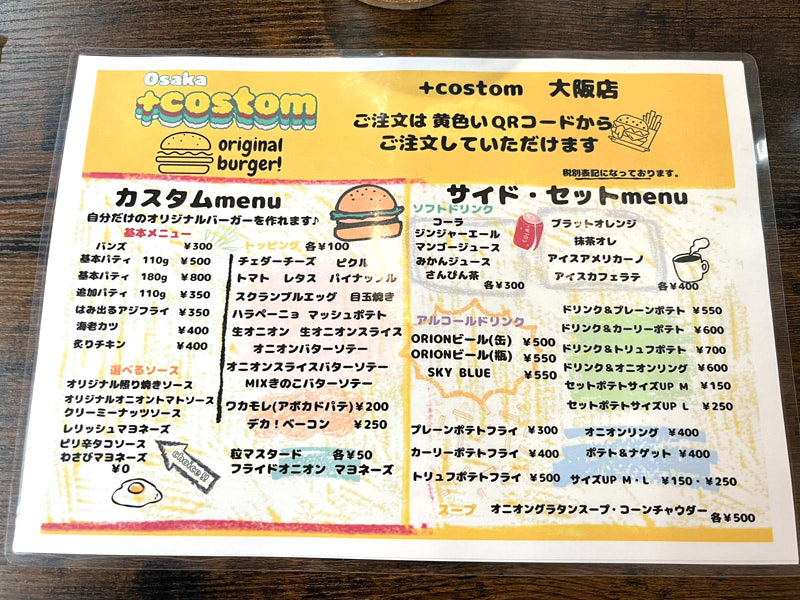 Osaka
+costom
original
burger!
+costom 大阪店
ご注文は 黄色いQRコードから
ご注文していただけます
税別表記になっております。
カスタムmenu
自分だけのオリジナルバーガーを作れます♪
基本メニュー
バンズ ¥300
基本パティ 110g ¥500
基本パティ 180g ¥800
追加パティ 110g ¥350
はみ出るアジフライ ¥350
海老カツ ¥400
炙りチキン ¥400
選べるソース
オリジナル照り焼きソース
オリジナルオニオントマトソース
クリーミーナッツソース
レリッシュマヨネーズ
ピリ辛タコソース
わさびマヨネーズ
¥0
choice!!
トッピング 各¥100
チェダーチーズ ピクル
トマト レタス パイナップル
スクランブルエッグ 目玉焼き
ハラペーニョ マッシュポテト
生オニオン 生オニオンスライス
オニオンバターソテー
オニオンスライスバターソテー
MIXきのこバターソテー
ワカモレ(アボカドパテ)¥200
デカ!ベーコン ¥250
粒マスタード 各¥50
フライドオニオン マヨネーズ
サイド・セットmenu
ソフトドリンク
コーラ
ジンジャーエール
マンゴージュース
みかんジュース
さんぴん茶
各¥300
ブラットオレンジ
抹茶オレ
アイスアメリカーノ
アイスカフェラテ
各¥400
アルコールドリンク
ORIONビール(缶) ¥500
ORIONビール(瓶) ¥550
SKY BLUE ¥550
ドリンク&プレーンポテト ¥550
ドリンク&カーリーポテト ¥600
ドリンク&トリュフポテト ¥700
ドリンク&オニオンリング ¥600
セットポテトサイズUP M ¥150
セットポテトサイズUP L ¥250
プレーンポテトフライ ¥300
カーリーポテトフライ ¥400
トリュフポテトフライ ¥500
オニオンリング ¥400
ポテト&ナゲット ¥400
サイズUP M・L ¥150・¥250
スープ オニオングラタンスープ・コーンチャウダー
各¥500